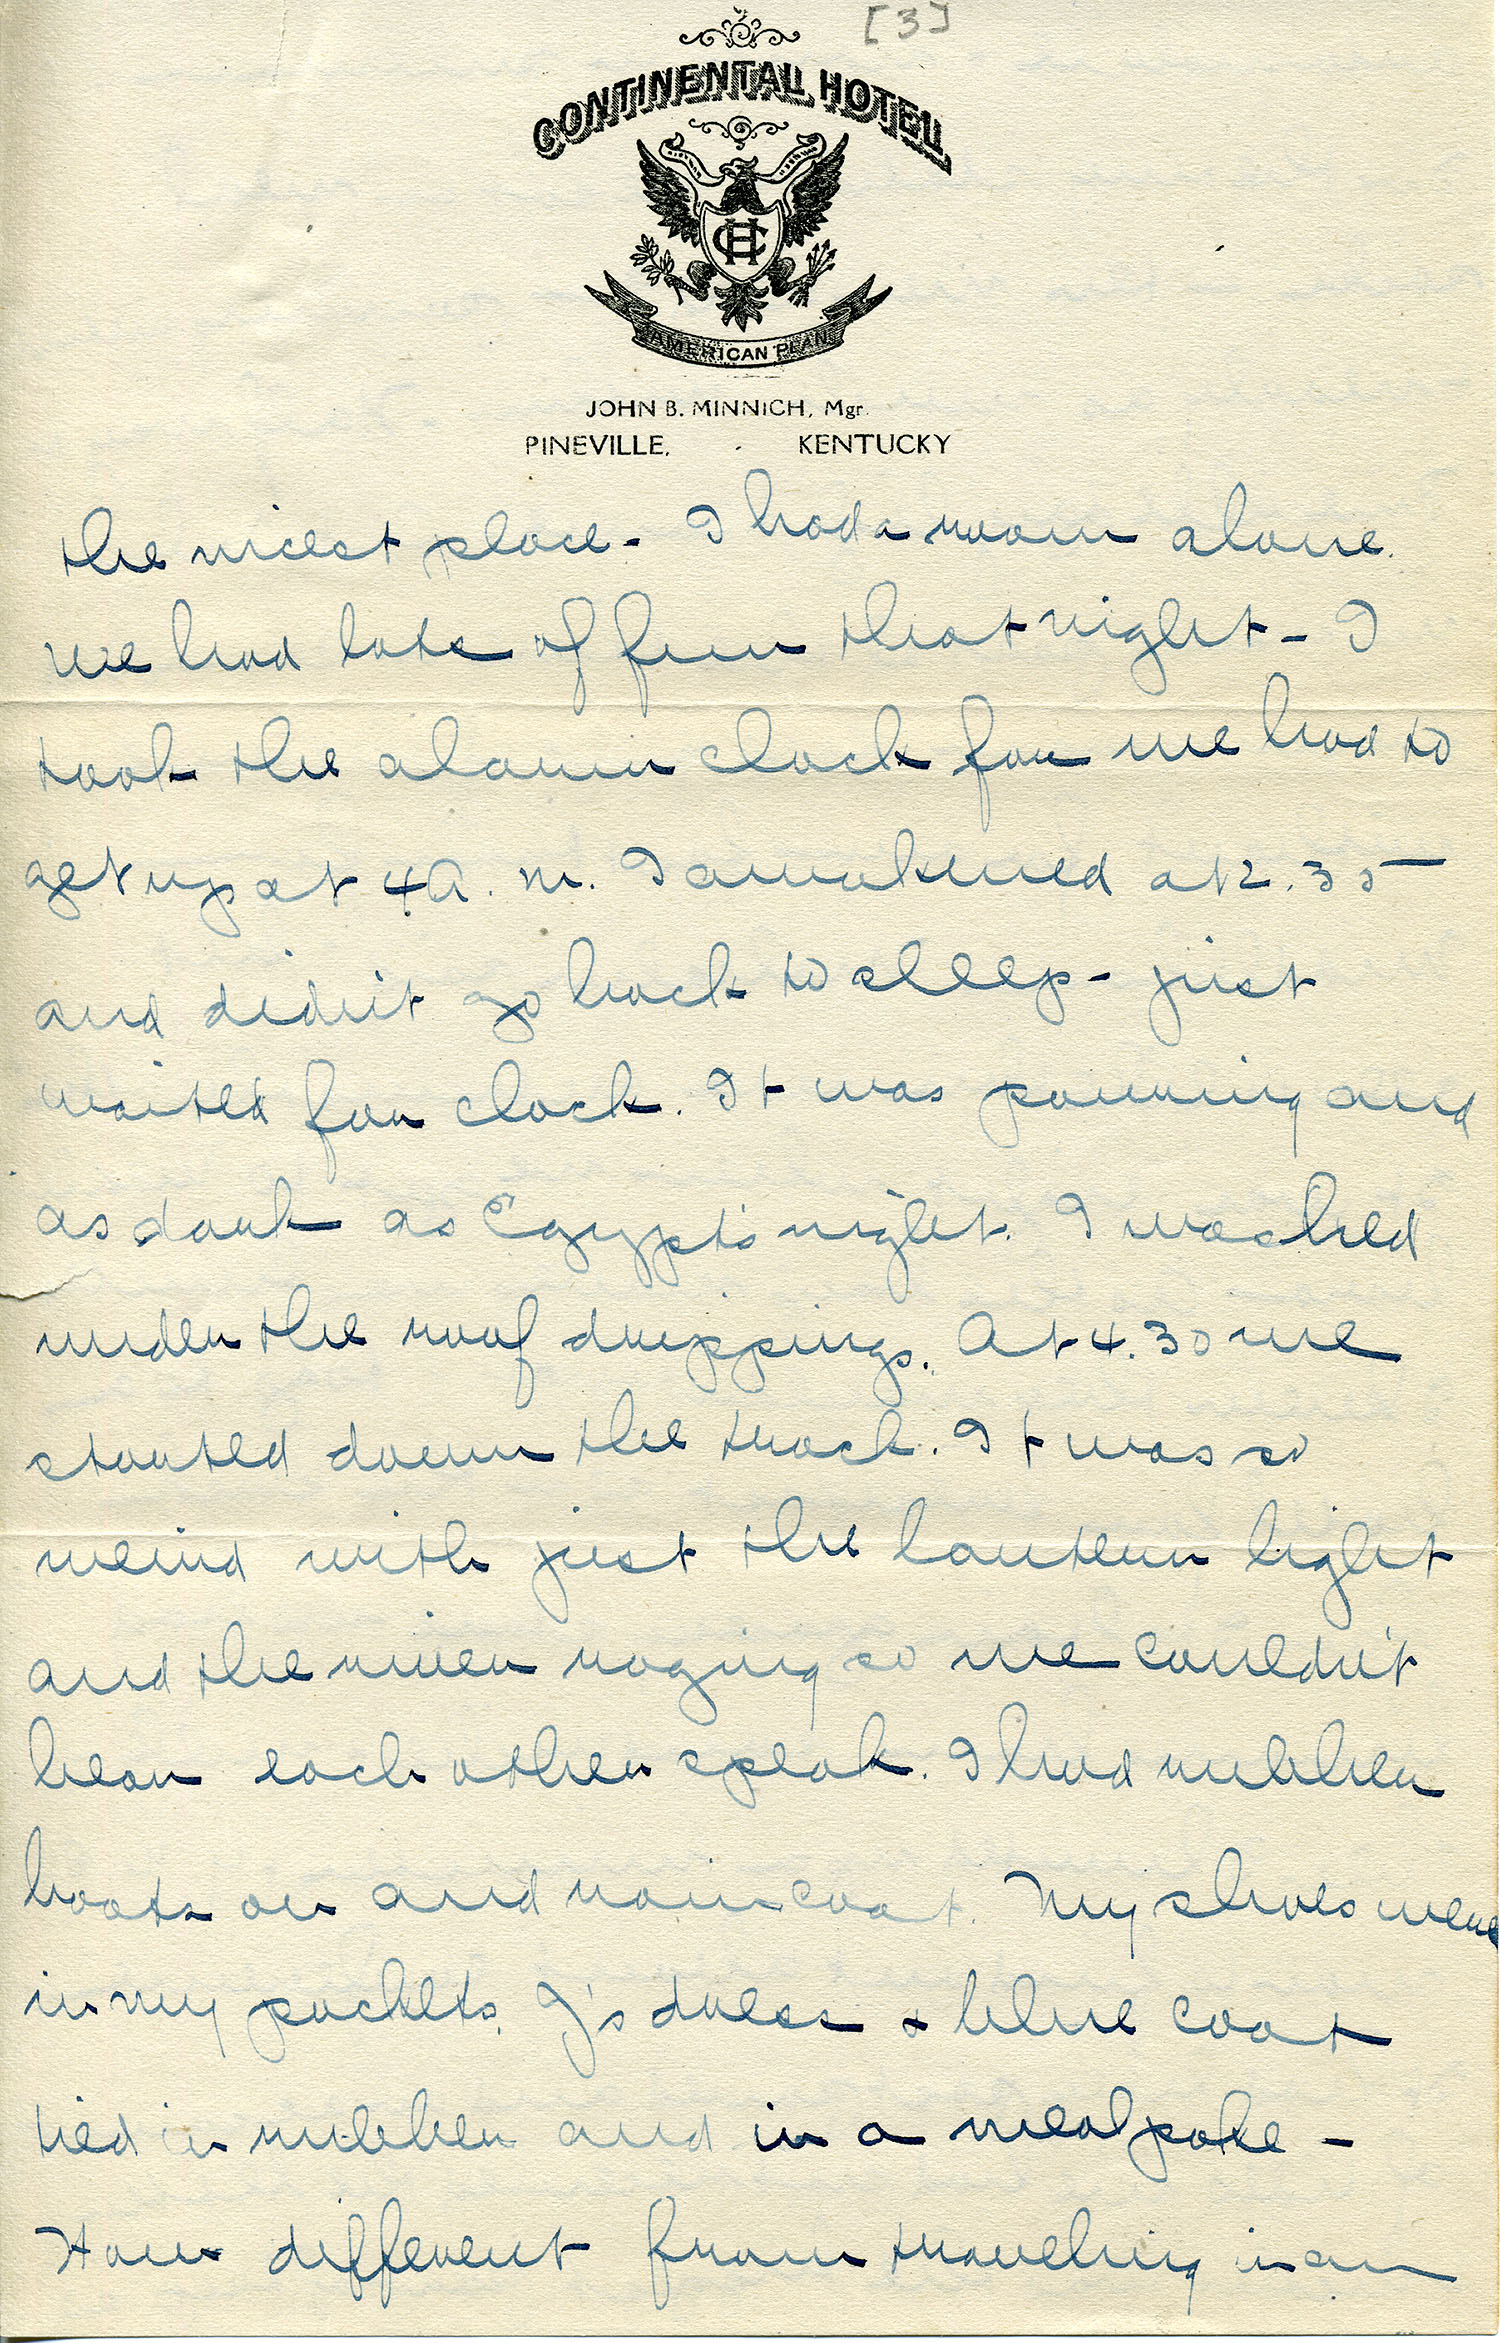 [3]
CONTINENTAL HOTEL
CH
AMERICAN PLAN
JOHN B. MINNICH, Mgr.
PINEVILLE, - KENTUCKY
the nicest place - I had a room alone.
We had lots of fun that night - I
took the alarm clock for we had to
get up at 4 A. M. I awakened at 2.35
and didn't go back to sleep - just
waited for clock. It was pouring and
as dark as Egypt's night. I washed
under the roof drippings. At 4.30 we
started down the track. It was so
weird with just the lantern light
and the river raging so we couldn't
hear each other speak. I had rubber
boots on and raincoat. My shoes were
in my pockets, J's dress + blue coat
tied in rubber and in a meal poke -
How different from traveling in an